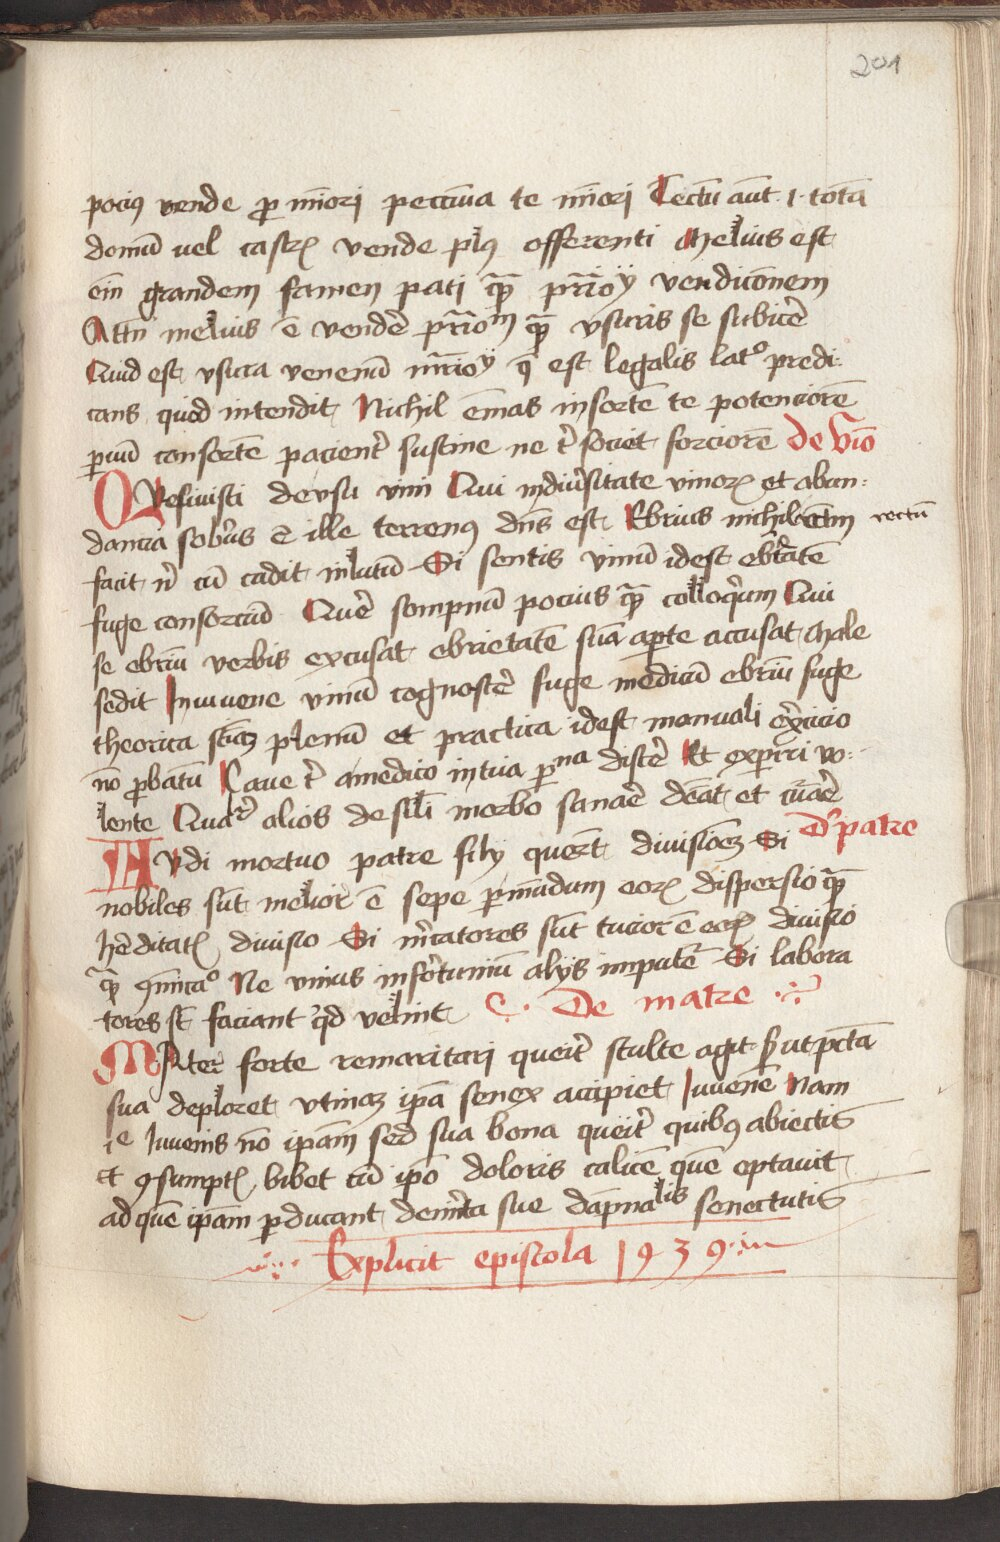 201
pocius vende p miori peccunia te miori Tectu aut .1. tota
domu uel castr vende plus offerenti Melius est
eni grandem famen pati qm vendicionem
Attn melius e vende qm vsuris se subice
Quid est vsura venenu q est legalis lato predi:
cans quod intendit Nichil emas in sorte te potenciore
pvuu consorte pacient sustine ne t societ forciore de vio
Quesiuisti de vsu vini Qui in diusitate vinor et abun:
dancia sobrus e ille terrenus dns est Ebrius nichil rectu
facit n cu cadit in lutu Si sentis vinu idest ebtate
fuge consorciu Quere sompnu pocius qm colloqum Qui
se ebriu verbis excusat ebrietate sua apte accusat Male
sedit In iuuene vinu cognosce fuge medicu ebriu fuge
theorica plenu et practica idest manuali
no pbatu Caue t a medico in tua discere Et expiri vo:
lente alios de sili morbo sanae deat et
Audi mortuo patre filij querut divisione Si D patre
nobiles sut melior e sepe p mudum eor dispersio qm
heditatis diuisio Si mcatores sut tucior e eor diuisio
qm Ne vnius infortuniu alijs impute Si labora
tores st faciant qd velint De matre
Mater forte remaritari querit stulte agit ut pcta
sua deploret vtinam ipa senex accipiet Iuvene Nam
ie Iuvenis no ipam sed sua bona querit quibus abiectis
et 9sumptis bibet cu ipo doloris calice que optauit
ad que ipam pducant demita sue dapnalis senectutis
Explicit epistola 1939